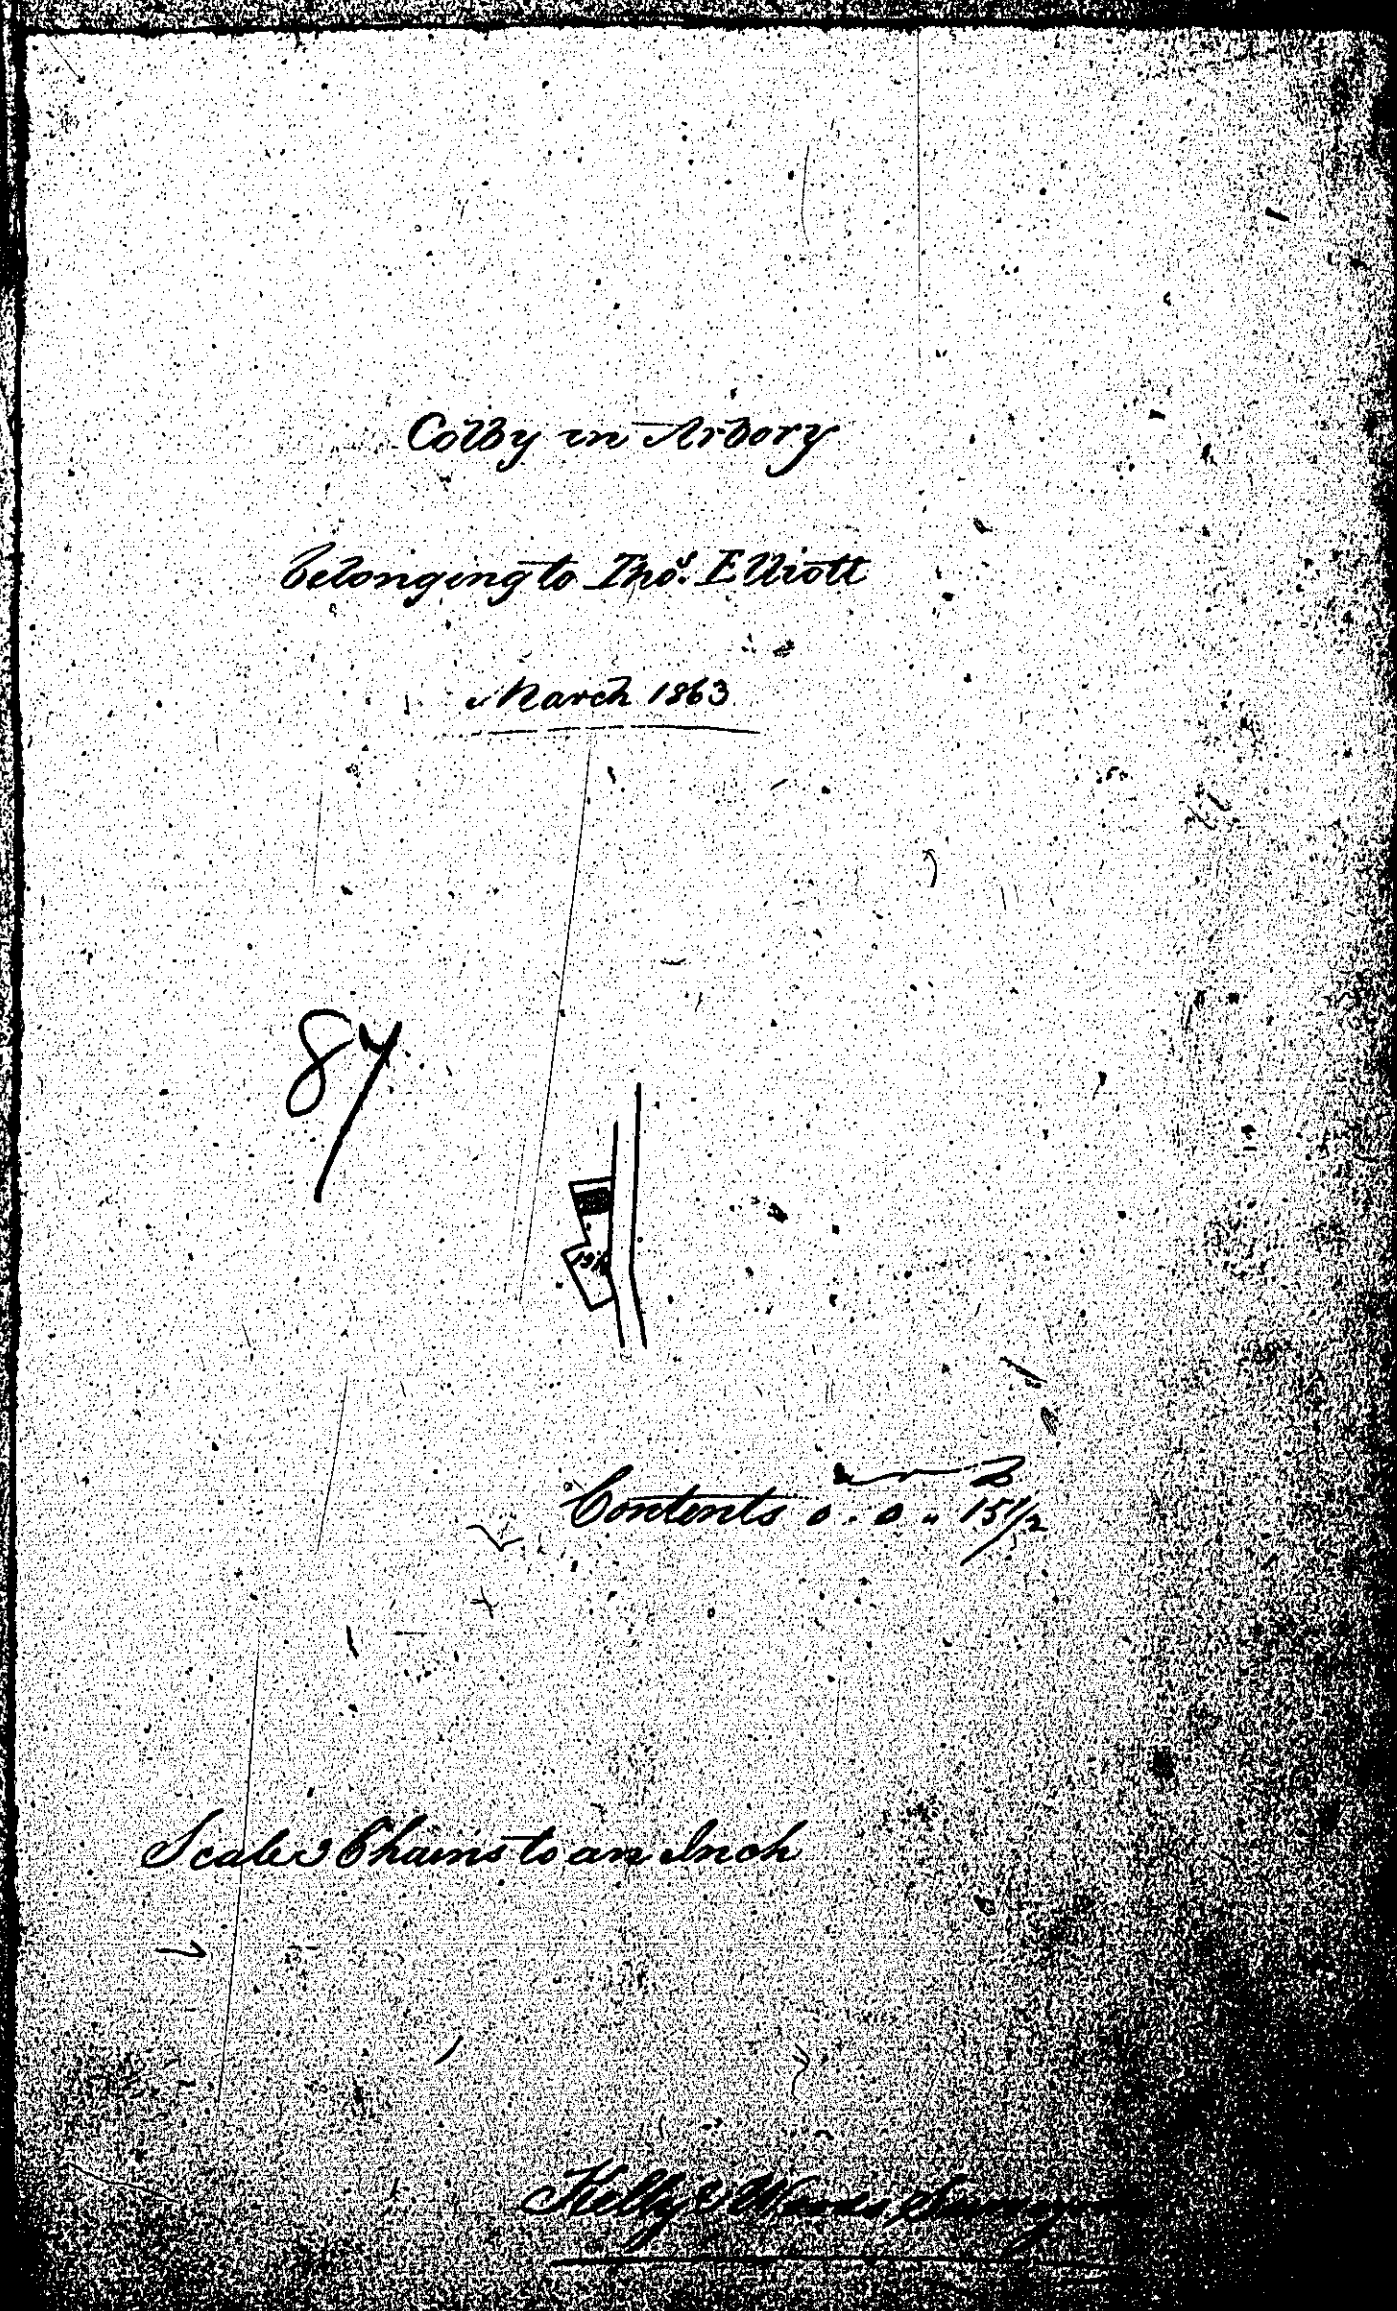 Colby in Arbory
belonging to Thos. Elliott
March 1863
87
Contents 0 . 0 „ 15 1/2
Scale 3 Chains to an Inch
Kelly & Woods Surveyors